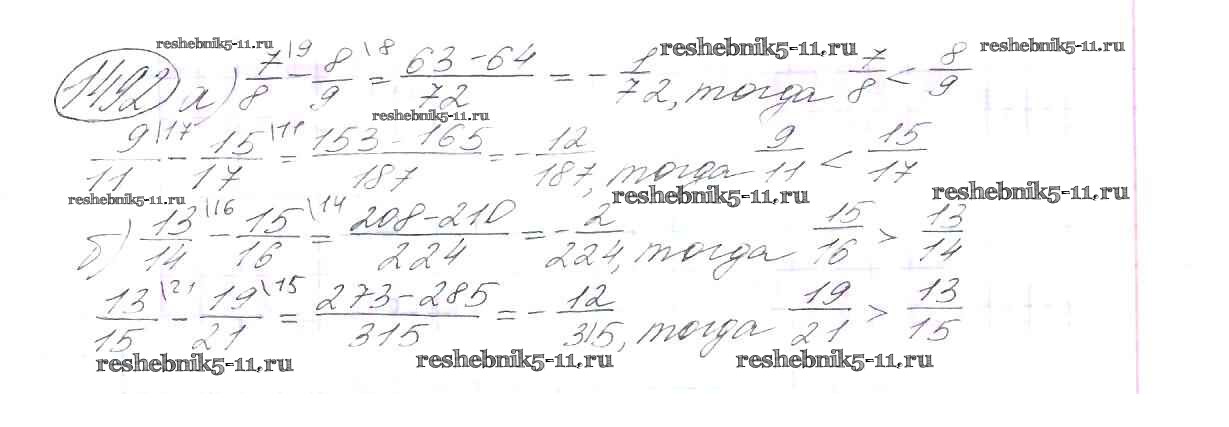 reshebnik5-11.ru reshebnik5-11.ru reshebnik5-11.ru
1492 а) 7/8 \9 - 8/9 \8 = (63-64)/72 = - 1/72, тогда 7/8 < 8/9
reshebnik5-11.ru
9/11 \17 - 15/17 \11 = (153-165)/187 = - 12/187, тогда 9/11 < 15/17
reshebnik5-11.ru reshebnik5-11.ru reshebnik5-11.ru
б) 13/14 \16 - 15/16 \14 = (208-210)/224 = - 2/224, тогда 15/16 > 13/14
13/15 \21 - 19/21 \15 = (273-285)/315 = - 12/315, тогда 19/21 > 13/15
reshebnik5-11.ru reshebnik5-11.ru reshebnik5-11.ru